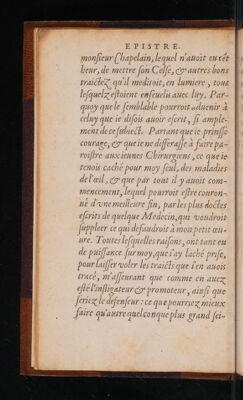 EPISTRE.
monſieur Chapelain, lequel n'auoit eu cét
heur, de mettre ſon Celſe, & autres bons
traictez qu'il meditoit, en lumiere, tous
leſquelz eſtoient enſeuelis auec luy. Par-
quoy que le ſemblable pourroit aduenir à
celuy que ie diſois auoir eſcrit, ſi ample-
ment de ce ſubiect. Partant que ie prinſſe
courage, & que ie ne differaſſe à faire pa-
roiſtre aux ieunes Chirurgiens, ce que ie
tenois caché pour moy ſeul, des maladies
de l'œil, & que par tout il y auoit com-
mencement, lequel pourroit eſtre couron-
né d'vne meilleure fin, par les plus doctes
eſcrits de quelque Medecin, qui voudroit
ſuppleer ce qui defaudroit à mon petit œu-
ure. Toutes leſquelles raiſons, ont tant eu
de puiſſance ſur moy, que i'ay laché priſe,
pour laiſſer voler les traicts que i'en auois
tracé, m'aſſeurant que comme en auez
eſté l'inſtigateur & promoteur, ainſi que
ſeriez le defenſeur: ce que pourrez mieux
faire qu'autre quelconque plus grand ſei-